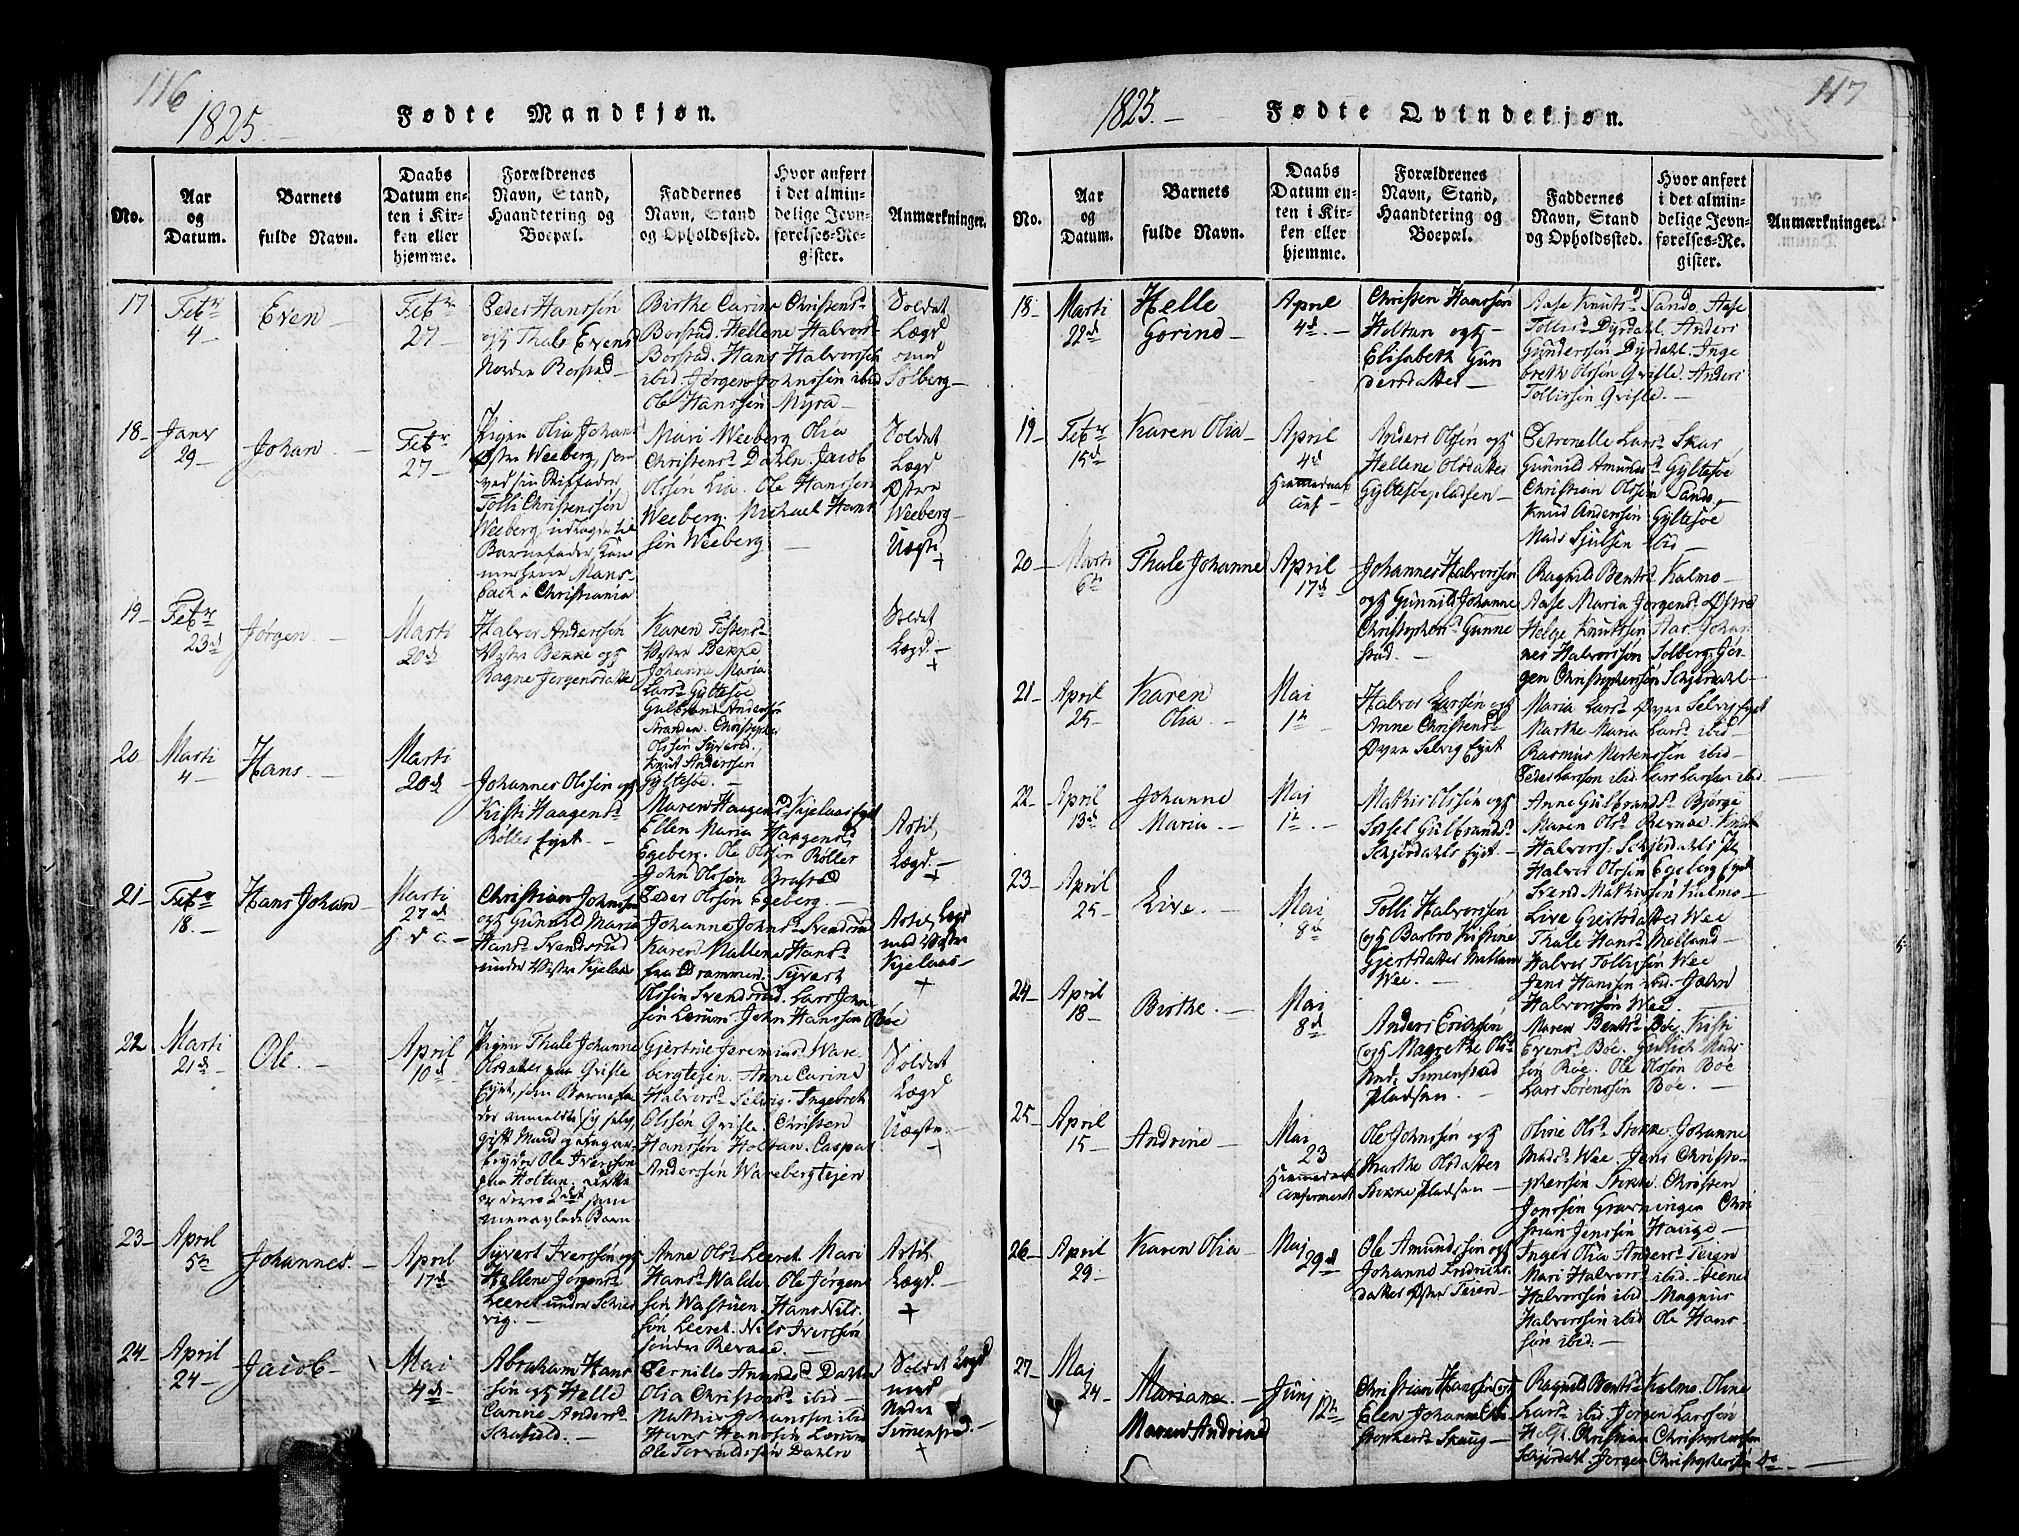 116
1825.
Fødte Mandkjøn.
No.
Aar og Datum.
Barnets fulde Navn.
Daabs Datum enten i Kirken eller hjemme.
Forældrenes Navn, Stand, Haandtering og Boepæl.
Faddernes Navn, Stand og Opholdssted.
Hvor anført i det almindelige Jevnførelses-Register.
Anmærkninger.
17
Febr 4
Even
Febr 27
Peder Hanssøn
og Thale Evensd
Nordre Borstad
Birthe Carine Christensd
Borstad. Hellene Halvorsd
Borstad. Hans Halvorssøn
ibid. Jørgen Johnssøn ibid
Ole Hanssøn Myra
Soldat
Lægd
med
Solberg
18
Janr 29
Johan
Febr 27
Pigen Olia Johans
Østre Weeberg, som
ved sin Stiffader
Tolli Christenssøn
Weeberg, udlagde til
Barnefader, Kam
merherre Mans
bach i Christiania
Mari Weeberg. Olia
Christensd Dahln. Jacob
Olssøn Lia. Ole Hanssøn
Weeberg. Michael Hans
søn Weeberg
Soldat
Lægd
Østre
Weeberg
Uægte
+
19
Febr 23d
Jørgen
Marti 20d
Halvor Anderssøn
Vestre Bekke og
Ragne Jørgensdatter
Karen Tostensd
Vestre Bekke
Johanne Maria
Larsd Gyltesøe
Gulbrand Anderssøn
Stranden. Christopher
Olssøn Syverd.
Knut Anderssøn
Gyltesøe.
Soldat
Lægd.
+
20
Marti 4
Hans
Marti 20d
Johannes Olssøn og
Kisti Haagensd
Røller Eyet.
Maren Haagensd Kjelaas Eyet
Ellen Maria Haagensd
Egeberg. Ole Olssøn Røller
John Olssøn Brastad
Peder Olssøn Egeberg.
Artil.
Lægd.
+
21
Febr 18.
Hans Johan
Marti 27d
Christian Johnssøn
og Gunnild Maria
Hansd Svendsrud
under Vestre Kjelaas
Johanne Johnsd Svendsrud
Karen Mallene Hansd
fra Drammen. Syvert
Olssøn Svendsrud. Lars John
søn Lærum. John Hanssøn Bøe
Artil. Lægd
med Vestre
Kjelaas
+
22
Marti 21d
Ole
April 10d
Pigen Thale Johanne
Olsdatter paa Grifle
Eyet, som Barnefa
der anmeldte sig selv,
gift Mand og Fagar
beyder Ole Iverssøn
paa Holtan, dette
er deres 2det sam
menavlede Barn
Gjertrue Jeremiasd Ware
bergtejen. Anne Carine
Halvorsd Selvig. Ingebret
Olssøn Grifle. Christen
Hanssøn Holtan. Caspar
Anderssøn Warebergtejen
Soldat
Lægd
Uægte
+
23
April 5te
Johannes.
April 17d
Syvert Iverssøn og
Hellene Jørgensd
Leeret under Schier
vig.
Anne Olsd Leeret. Mari
Hansd Walde. Ole Jørgens
søn Wastuen. Hans Nils
søn Leeret. Nils Iverssøn
søndre Revaae.
Artil.
Lægd.
+
24
April 24
Jacob
Mai 4de
Abraham Hans
søn og Helle
Carine Andersd
Schafuld.
Pernille Amundsd Dahlen
Olia Christensd ibid
Mathis Johanssøn ibid
Hans Hanssøn Lærum
Ole Torvaldssøn Dahlen
Soldat Lægd
med
Nedre
Simenstad.
+
117
1825.
Fødte Qvindekjøn.
No.
Aar og Datum.
Barnets fulde Navn.
Daabs Datum enten i Kirken eller hjemme.
Forældrenes Navn, Stand, Haandtering og Boepæl.
Faddernes Navn, Stand og Opholdssted.
Hvor anført i det almindelige Jevnførelses-Register.
Anmærkninger.
18
Marti 22d
Helle
Gorine
April 4d
Christen Hanssøn
Holtan og
Elisabeth Gun
dersdatter
Aase Knutsd Sando. Aase
Tollisd Dyrdahl. Anders
Gunderssøn Dyrdahl. Inge
breth Olssøn Grifle. Anders
Tollissøn Grifle.
19
Febr 15d
Karen Olia
April 4d
Anders Olssøn og
Hellene Olsdatter
Gyltesøepladsen
Petronelle Larsd Skar
Gunnild Amundsd Gyltesøe
Christian Olssøn Sando
Knud Anderssøn Gyltesøe
Mads Sjulsen ibid
20
Marti 6te
Thale Johanne
April 17d
Johannes Halvorssøn
og Gunnild Johanne
Christophersd Gunne
stad.
Ragnild Bentsd Kalmo
Aase Maria Jørgensd Østre
Helge Knutssøn Aas. Johan
nes Halvorssøn Solberg. Jør
gen Christopherssøn Schjørdahl
21
April 25
Karen
Olia
Mai 1te
Halvor Larssøn og
Anne Christensd
Øvre Selvig Eyet
Maria Larsd Øvre Selvig Eyet
Marthe Maria Larsd ibid
Rasmus Mortenssøn ibid
Peder Larssøn ibid. Lars Larssøn ibid.
22
April 13d
Johanne
Maria
Mai 1te
Mathis Olssøn og
Sidsel Gulbrandsd
Schjørdahls Eyet
Anne Gulbrandsd Bjørge
Maren Olsd Revaae. Knut
Halvorss. Schjørdahls Pl.
Halvor Olssøn Egeberg Eyet
Svend Mathissøn Kalmo
23
April 25
Live
Mai 8de
Tolli Halvorssøn
og Barbro Kistine
Gjertsdatter Mælland
Wee.
Live Gjertsdatter Wee
Thale Hansd Mælland
Halvor Tollissøn Wee
Jens Hanssøn ibid. John
Halvorssøn Wee
24
April 18
Birthe
Mai 8d
Anders Erichssøn
og Magrethe Olsd
Und. Simenstad
Pladsen.
Maren Bentsd Bøe. Kisti
Evensd Bøe. Gørlich Mads
søn Bøe. Ole Olssøn Bøe
Lars Sørenssøn Bøe.
25
April 15
Andrine
Mai 23
Ole Johnssøn og
Marthe Olsdatter
Stokke Pladsen
Oline Olsd Stokke. Johanne
Madsd Wee. Jens Christo
pherssøn Stokke. Christen
Jonssøn Gravningen. Chri
stian Jenssøn Hauge
26
April 29
Karen Olia
Mai 29d
Ole Amundssøn og
Johanne Andrichs
datter Østre Teien
Inger Olia Andersd Teien
Mari Halvorsd ibid. Teene
Halvorssøn ibid. Magnus
Halvorssøn ibid Ole Hans
søn ibid.
27
Mai 24
Mariane
Maren Andrine
Junj 12te
Christian Hanssøn og
Elen Johanne Chri
stophersd Skaug
Ragnild Bentsd Kalmo. Oline
Larsd ibid. Jørgen Larssøn
Holt. Christian Christopherssøn
Schjørdahl. Jørgen Christopherssøn do